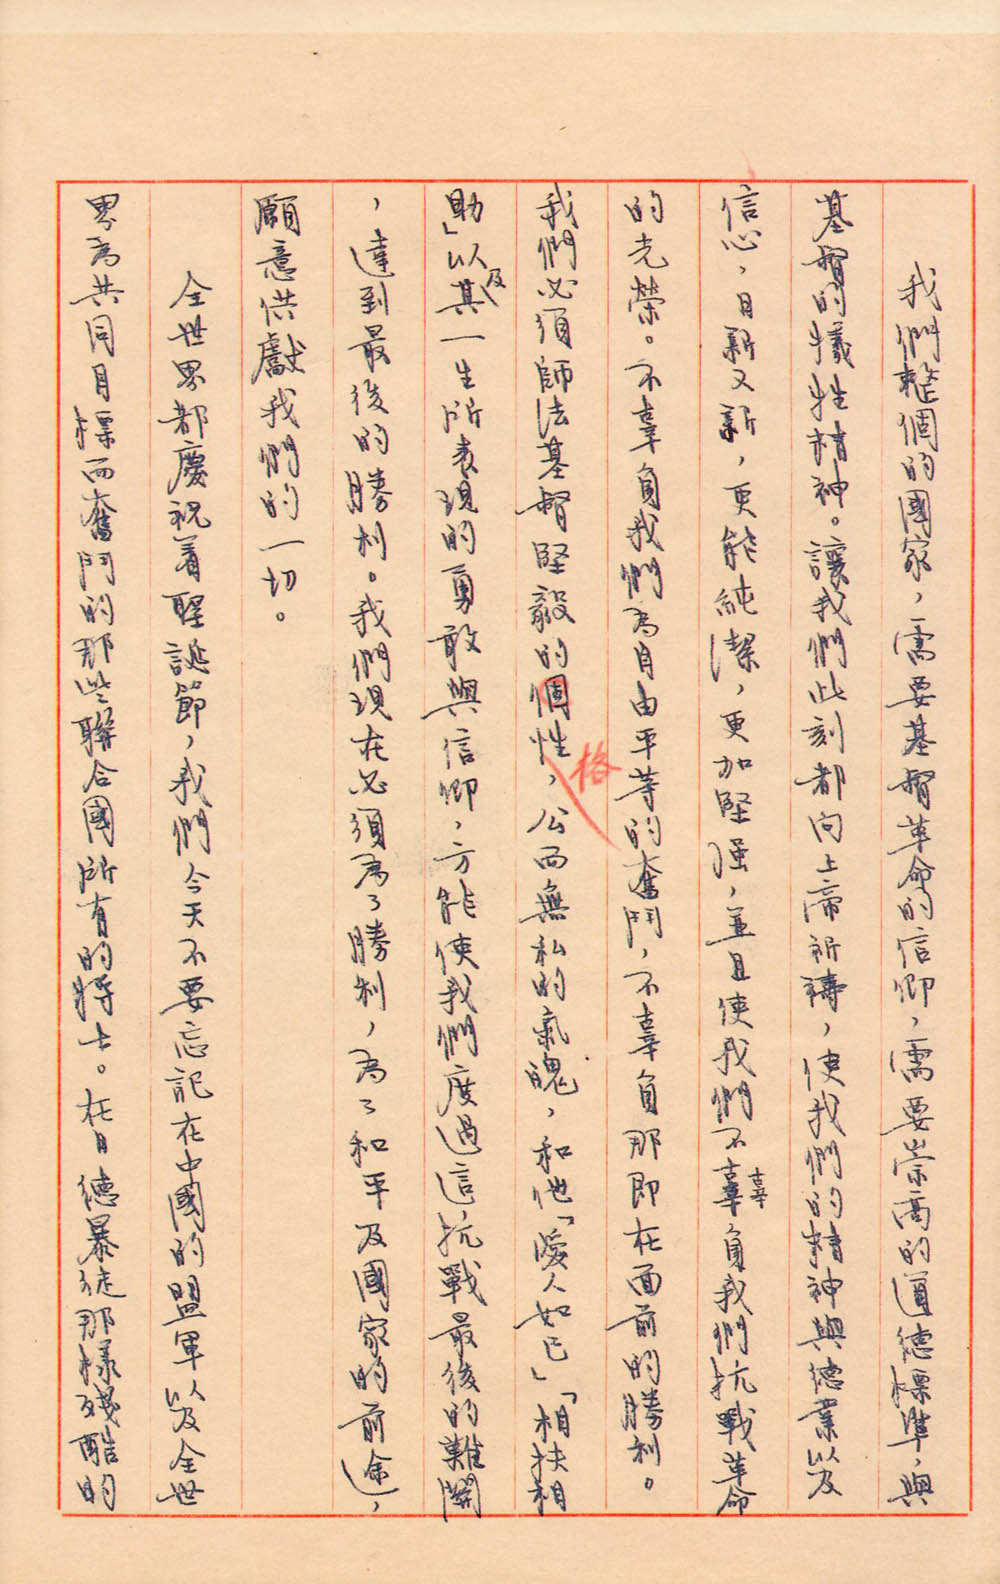 我們整個的國家，需要基督革命的信仰，需要崇高的道德標準，與
基督的犧牲精神。讓我們此刻都向上帝祈禱，使我們的精神與德業以及
信心，日新又新，更能純潔，更加堅強，並且使我們不辜辜負我們抗戰革命
的光榮。不辜負我們為自由平等的奮鬥，不辜負那即在面前的勝利。
我們必須師法基督堅毅的個性格，公而無私的氣魄，和他「愛人如己」「相扶相
助」以及其一生所表現的勇敢與信仰，方能使我們度過這抗戰最後的難關
，達到最後的勝利。我們現在必須為了勝利，為了和平及國家的前途，
願意供獻我們的一切。
全世界都慶祝着聖誕節，我們今天不要忘記在中國的盟軍以及全世
界為共同目標而奮鬥的那些聯合國所有的將士。在日德暴徒那樣殘酷的